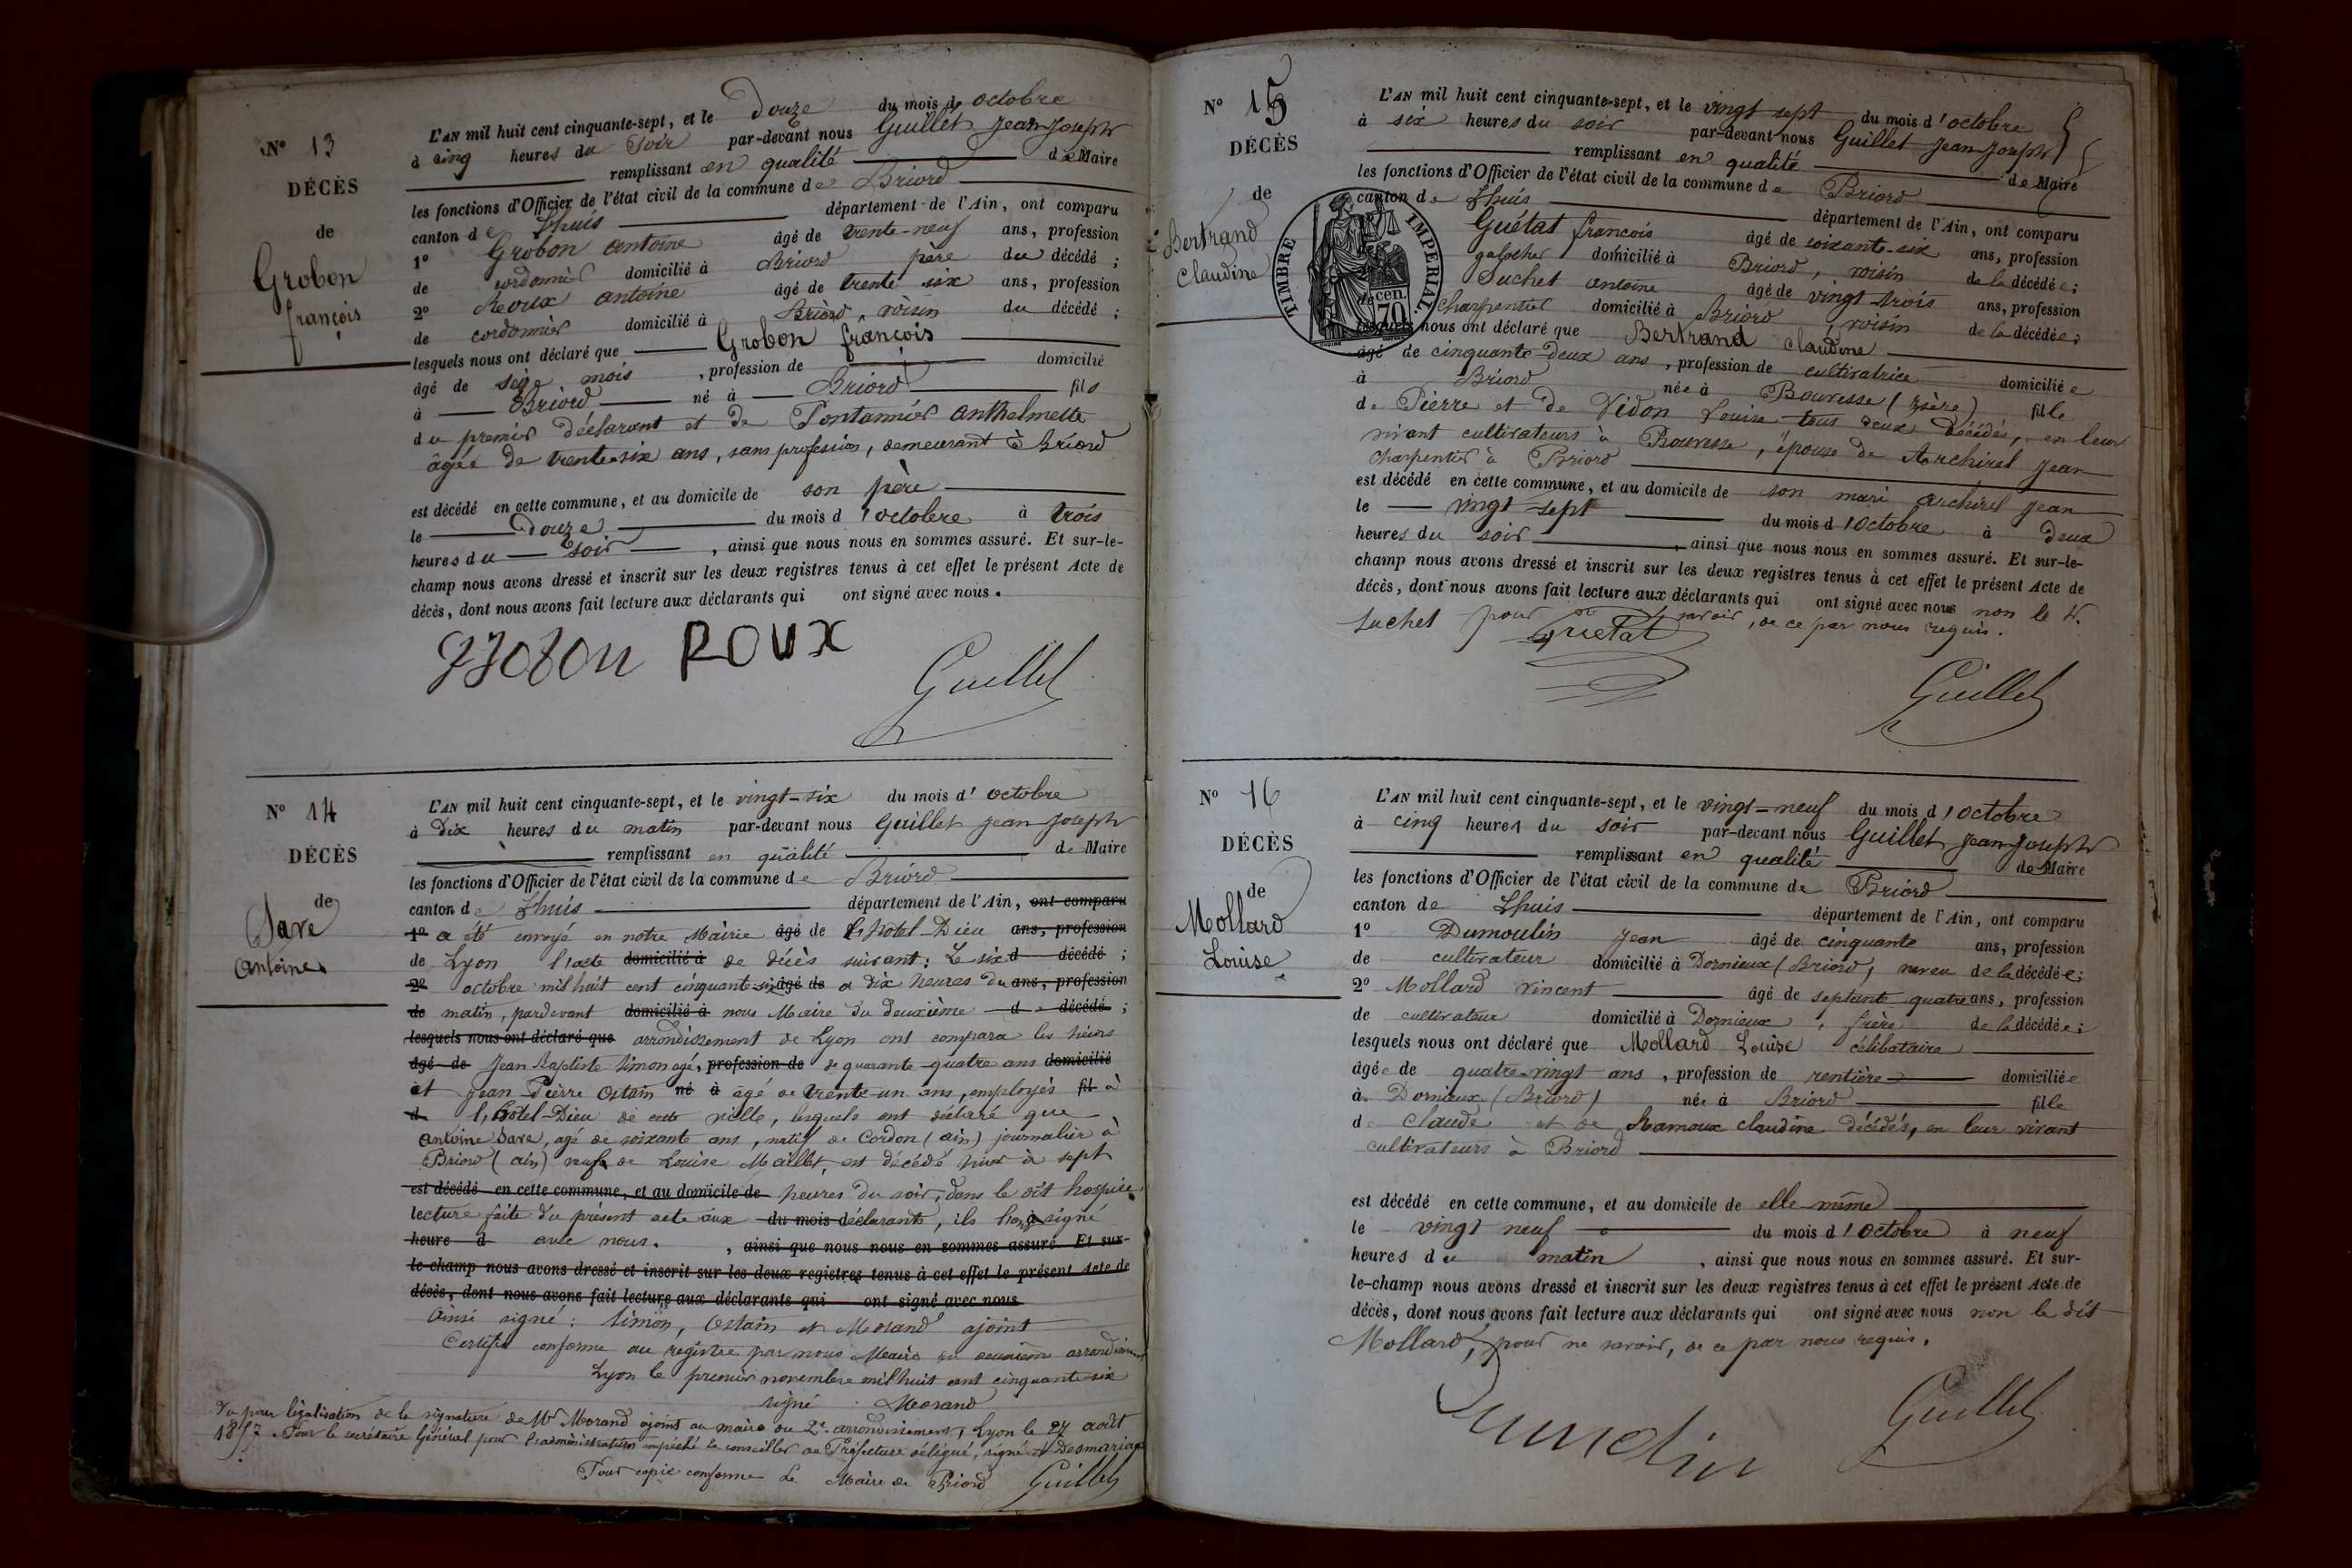 N° 13
DÉCÈS
de
Grobon
françois
L'AN mil huit cent cinquante-sept, et le douze du mois d octobre
à cinq heures du soir par-devant nous Guillet Jean Joseph
remplissant en qualité de Maire
les fonctions d'Officier de l'état civil de la commune de Briord
canton de Lhuis département de l'Ain, ont comparu
1° Grobon antoine âgé de trente-neuf ans, profession
de cordonnier domicilié à Briord père du décédé ;
2° Reoux antoine âgé de trente six ans, profession
de cordonnier domicilié à Briord, voisin du décédé ;
lesquels nous ont déclaré que Grobon françois
âgé de seize mois, profession de domicilié
à Briord né à Briord fils
du premier déclarant et de Pontannier anthelmette
âgée de trente-six ans, sans profession, demeurant à Briord
est décédé en cette commune, et au domicile de son père
le douze du mois d'octobre à trois
heures du soir, ainsi que nous nous en sommes assuré. Et sur-le-
champ nous avons dressé et inscrit sur les deux registres tenus à cet effet le présent Acte de
décès, dont nous avons fait lecture aux déclarants qui ont signé avec nous.
ROUX
Guillet
N° 14
DÉCÈS
de
Save
antoine
L'AN mil huit cent cinquante-sept, et le vingt-six du mois d'octobre
à dix heures du matin par-devant nous Guillet Jean Joseph
remplissant en qualité de Maire
les fonctions d'Officier de l'état civil de la commune de Briord
canton de Lhuis département de l'Ain, ont comparu
1° a été envoyé en notre Mairie âgé de l'hotel-Dieu ans, profession
de Lyon l'acte domicilié à de décès suivant : Le six d décédé ;
2° octobre mil huit cent cinquante-six âgé de a dix heures du ans, profession
de matin, pardevant domicilié à nous Maire du deuxième d décédé ;
lesquels nous ont déclaré que arrondissement de Lyon ont comparu les sieurs
âgé de Jean Baptiste Simon agé, profession de de quarante-quatre ans domicilié
à et Jean Pierre Ostain né à âgé de trente-un ans, employés fil à
d l'hôtel-Dieu de cette ville, lesquels ont déclaré que
antoine Save, agé de soixante ans, natif de Cordon (ain) journalier à
Briord (ain) veuf de Louise Maillet, est décédé hier à sept
est décédé en cette commune, et au domicile de heures du soir, dans le dit hospice.
lecture faite du présent acte aux du mois déclarants, ils à signé
heure d avec nous., ainsi que nous nous en sommes assuré. Et sur-
le-champ nous avons dressé et inscrit sur les deux registres tenus à cet effet le présent Acte de
décès, dont nous avons fait lecture aux déclarants qui ont signé avec nous
ainsi signé : Simon, Ostain et Morand ajoint
Certifié conforme au registre par nous Maire du deuxième arrondissement
Lyon le premier novembre mil huit cent cinquante-six
signé Morand
Vu pour légalisation de la signature de Mr Morand ajoint au maire du 2e arrondissement, Lyon le 27 août
1857. Pour le secrétaire Général pour l'administration empêché le conseiller de Préfecture délégué, signé
Pour copie conforme Le Maire de Briord Guillet
N° 15
DÉCÈS
de
Bertrand
Claudine
TIMBRE IMPERIAL
70 cen.
L'AN mil huit cent cinquante-sept, et le vingt sept du mois d'octobre
à six heures du soir par-devant nous Guillet Jean Joseph
remplissant en qualité de Maire
les fonctions d'Officier de l'état civil de la commune de Briord
canton de Lhuis département de l'Ain, ont comparu
Guétat francois âgé de soixante-six ans, profession
galocher domicilié à Briord, voisin de la décédée ;
Suchet antoine âgé de vingt-trois ans, profession
charpentier domicilié à Briord, voisin de la décédée ;
lesquels nous ont déclaré que Bertrand claudine
âgé de cinquante-deux ans, profession de cultivatrice domiciliée
à Briord née à Bouvesse (Isère) fille
de Pierre et de Vidon Louise tous deux décédés, en leur
vivant cultivateurs à Bouvesse, épouse de Archirel Jean
charpentier à Briord
est décédé en cette commune, et au domicile de son mari archirel Jean
le vingt-sept du mois d'octobre à deux
heures du soir, ainsi que nous nous en sommes assuré. Et sur-le-
champ nous avons dressé et inscrit sur les deux registres tenus à cet effet le présent Acte de
décès, dont nous avons fait lecture aux déclarants qui ont signé avec nous non le d.
Suchet pour ne savoir, de ce par nous requis.
Guetat
Guillet
N° 16
DÉCÈS
de
Mollard
Louise
L'AN mil huit cent cinquante-sept, et le vingt-neuf du mois d'octobre
à cinq heures du soir par-devant nous Guillet Jean Joseph
remplissant en qualité de Maire
les fonctions d'Officier de l'état civil de la commune de Briord
canton de Lhuis département de l'Ain, ont comparu
1° Dumoulin Jean âgé de cinquante ans, profession
de cultivateur domicilié à Dornieux (Briord), neveu de la décédée ;
2° Mollard vincent âgé de septante quatre ans, profession
de cultivateur domicilié à Dornieux, frère de la décédée ;
lesquels nous ont déclaré que Mollard Louise célibataire
âgée de quatre-vingt ans, profession de rentière domiciliée
à Dornieux (Briord) née à Briord fille
d claude et de Ramoux claudine décédés, en leur vivant
cultivateurs à Briord
est décédé en cette commune, et au domicile de elle-même
le vingt neuf du mois d'octobre à neuf
heures du matin, ainsi que nous nous en sommes assuré. Et sur-
le-champ nous avons dressé et inscrit sur les deux registres tenus à cet effet le présent Acte de
décès, dont nous avons fait lecture aux déclarants qui ont signé avec nous non le dit
Mollard, pour ne savoir, de ce par nous requis.
Guillet